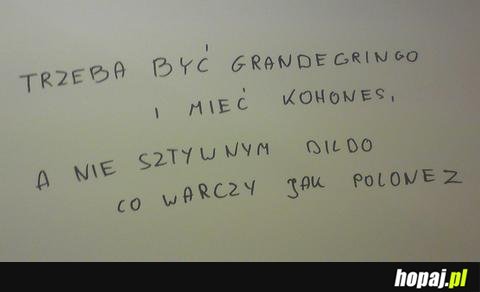 TRZEBA BYĆ GRANDEGRINGO
I MIEĆ KOHONES,
A NIE SZTYWNYM DILDO
CO WARCZY JAK POLONEZ
hopaj.pl